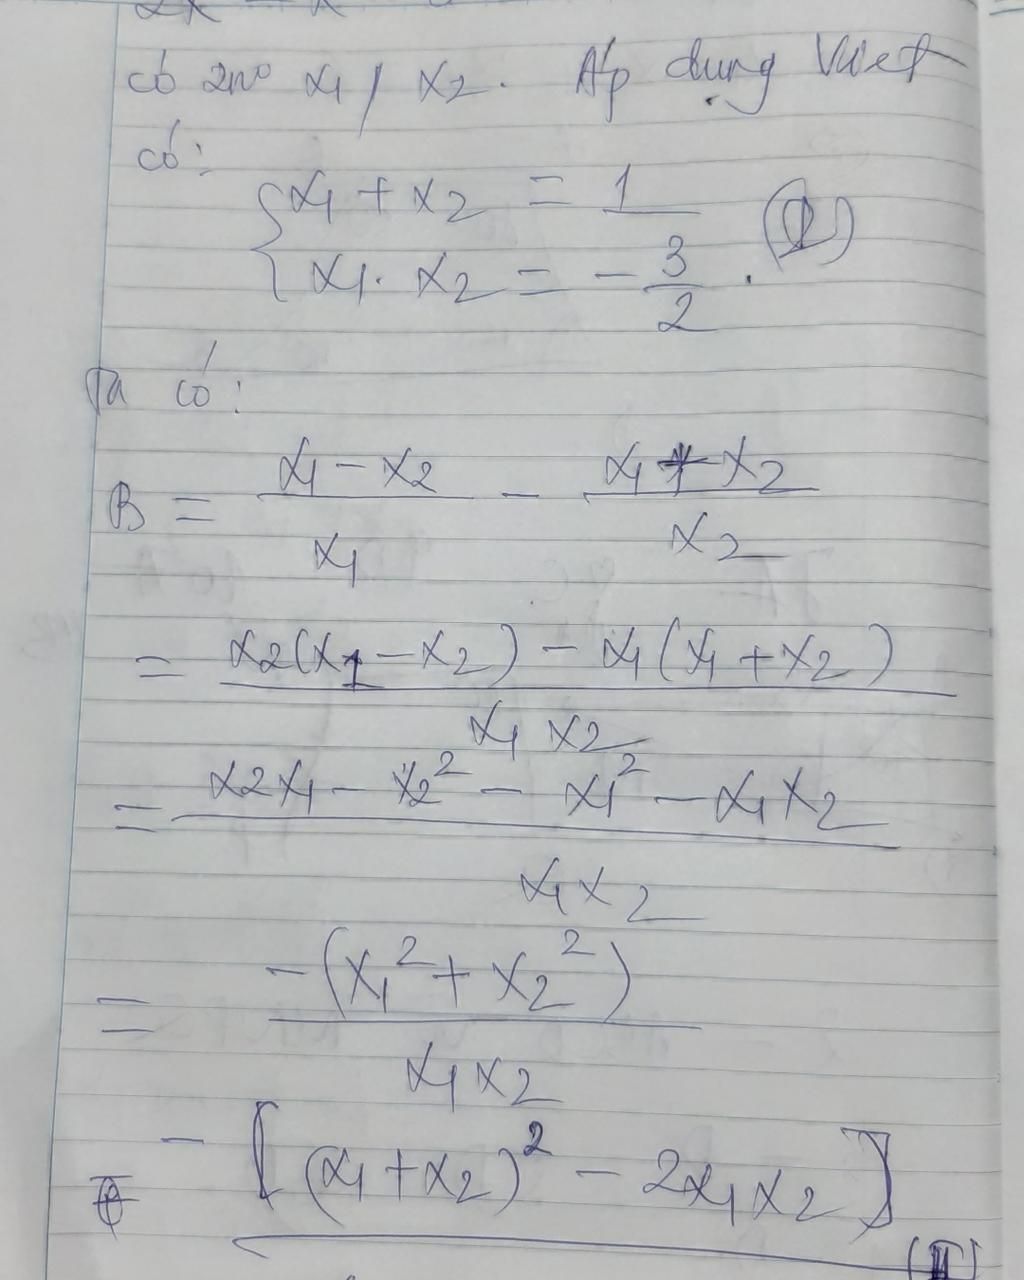 có 2n⁰ x₁, x₂. Áp dụng Viet
có:
{ x₁ + x₂ = 1
x₁. x₂ = - 3/2 . (I)
Ta có:
B = (x₁ - x₂)/x₁ - (x₁ + x₂)/x₂
= (x₂(x₁ - x₂) - x₁(x₁ + x₂))/(x₁ x₂)
= (x₂x₁ - x₂² - x₁² - x₁x₂)/(x₁x₂)
= -(x₁² + x₂²)/(x₁x₂)
- [(x₁ + x₂)² - 2x₁x₂]
(II)